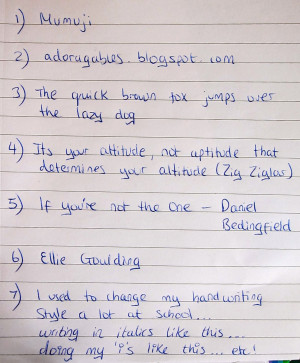 1) Mumuji
2) adorugables.blogspot.com
3) The quick brown fox jumps over
the lazy dog
4) Its your attitude, not aptitude that
determines your altitude (Zig Ziglar)
5) If you're not the one - Daniel
Bedingfield
6) Ellie Goulding
7) I used to change my handwriting
style a lot at school...
writing in italics like this...
doing my 'i's like this... etc!